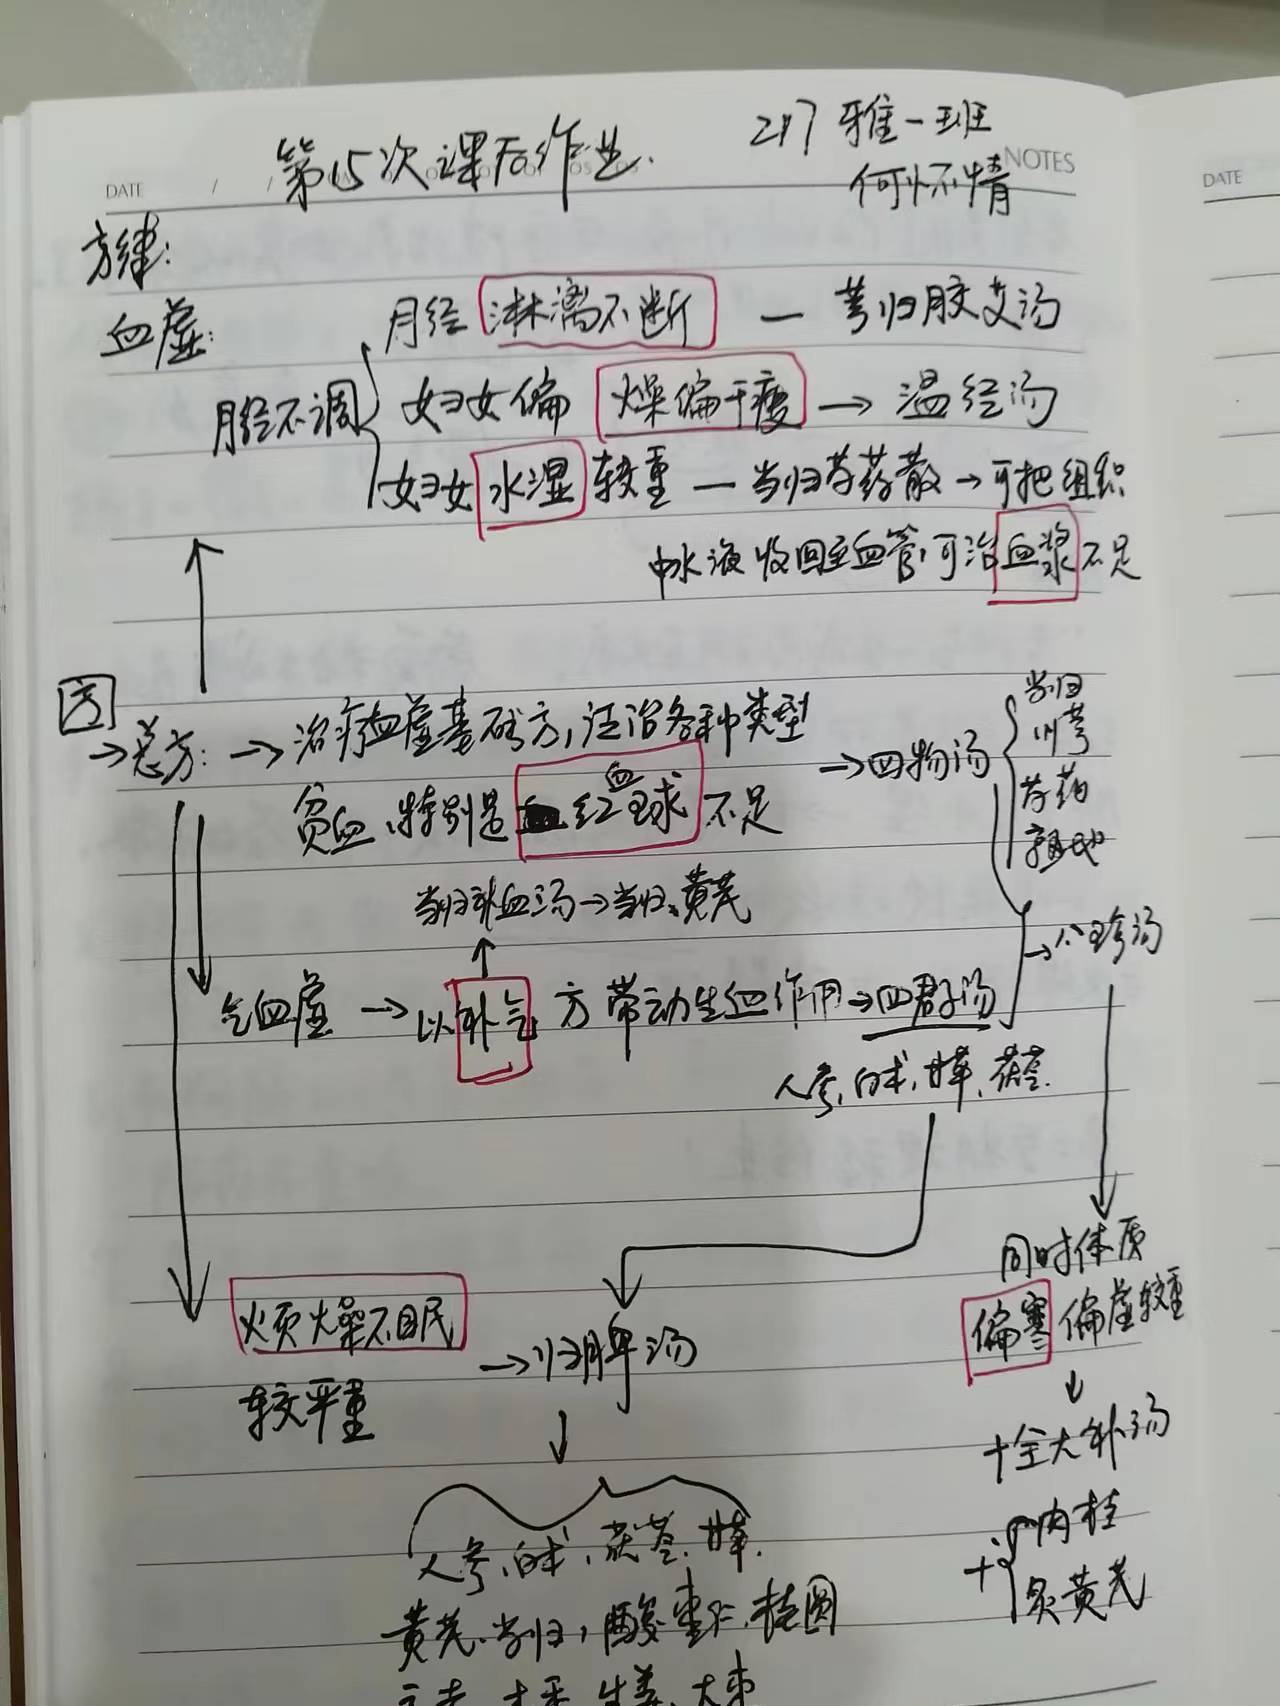 第15次课后作业.
217 雅一班
NOTES
何怀情
DATE / /
DATE
方律:
血虚:
月经不调
月经 淋漓不断 — 芎归胶艾汤
妇女偏 燥偏干瘦 → 温经汤
妇女 水湿 较重 — 当归芍药散 → 可把组织
中水液收回至血管,可治血浆不足
方
→总方: → 治疗血虚基础方,泛治各种类型
贫血、特别是 红血球 不足
→四物汤
当归
川芎
芍药
熟地
当归补血汤→当归、黄芪
→八珍汤
气血虚 → 以补气 方带动生血作用→四君子汤
人参,白术,甘草,茯苓.
同时体质
偏寒 偏虚较重
烦燥不眠
较严重
→归脾汤
十全大补汤
+ 肉桂
炙黄芪
人参,白术,茯苓.甘草.
黄芪.当归,酸枣仁.桂圆
生姜、大枣